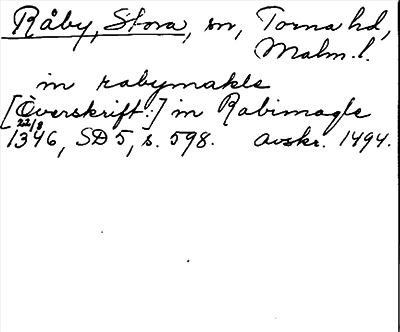 Råby, Stora, sn, Torna hd,
Malm. l.
in rabymakle
[Överskrift:] in Rabimagle
22/8
1346, SD 5, s. 598. Avskr. 1494.